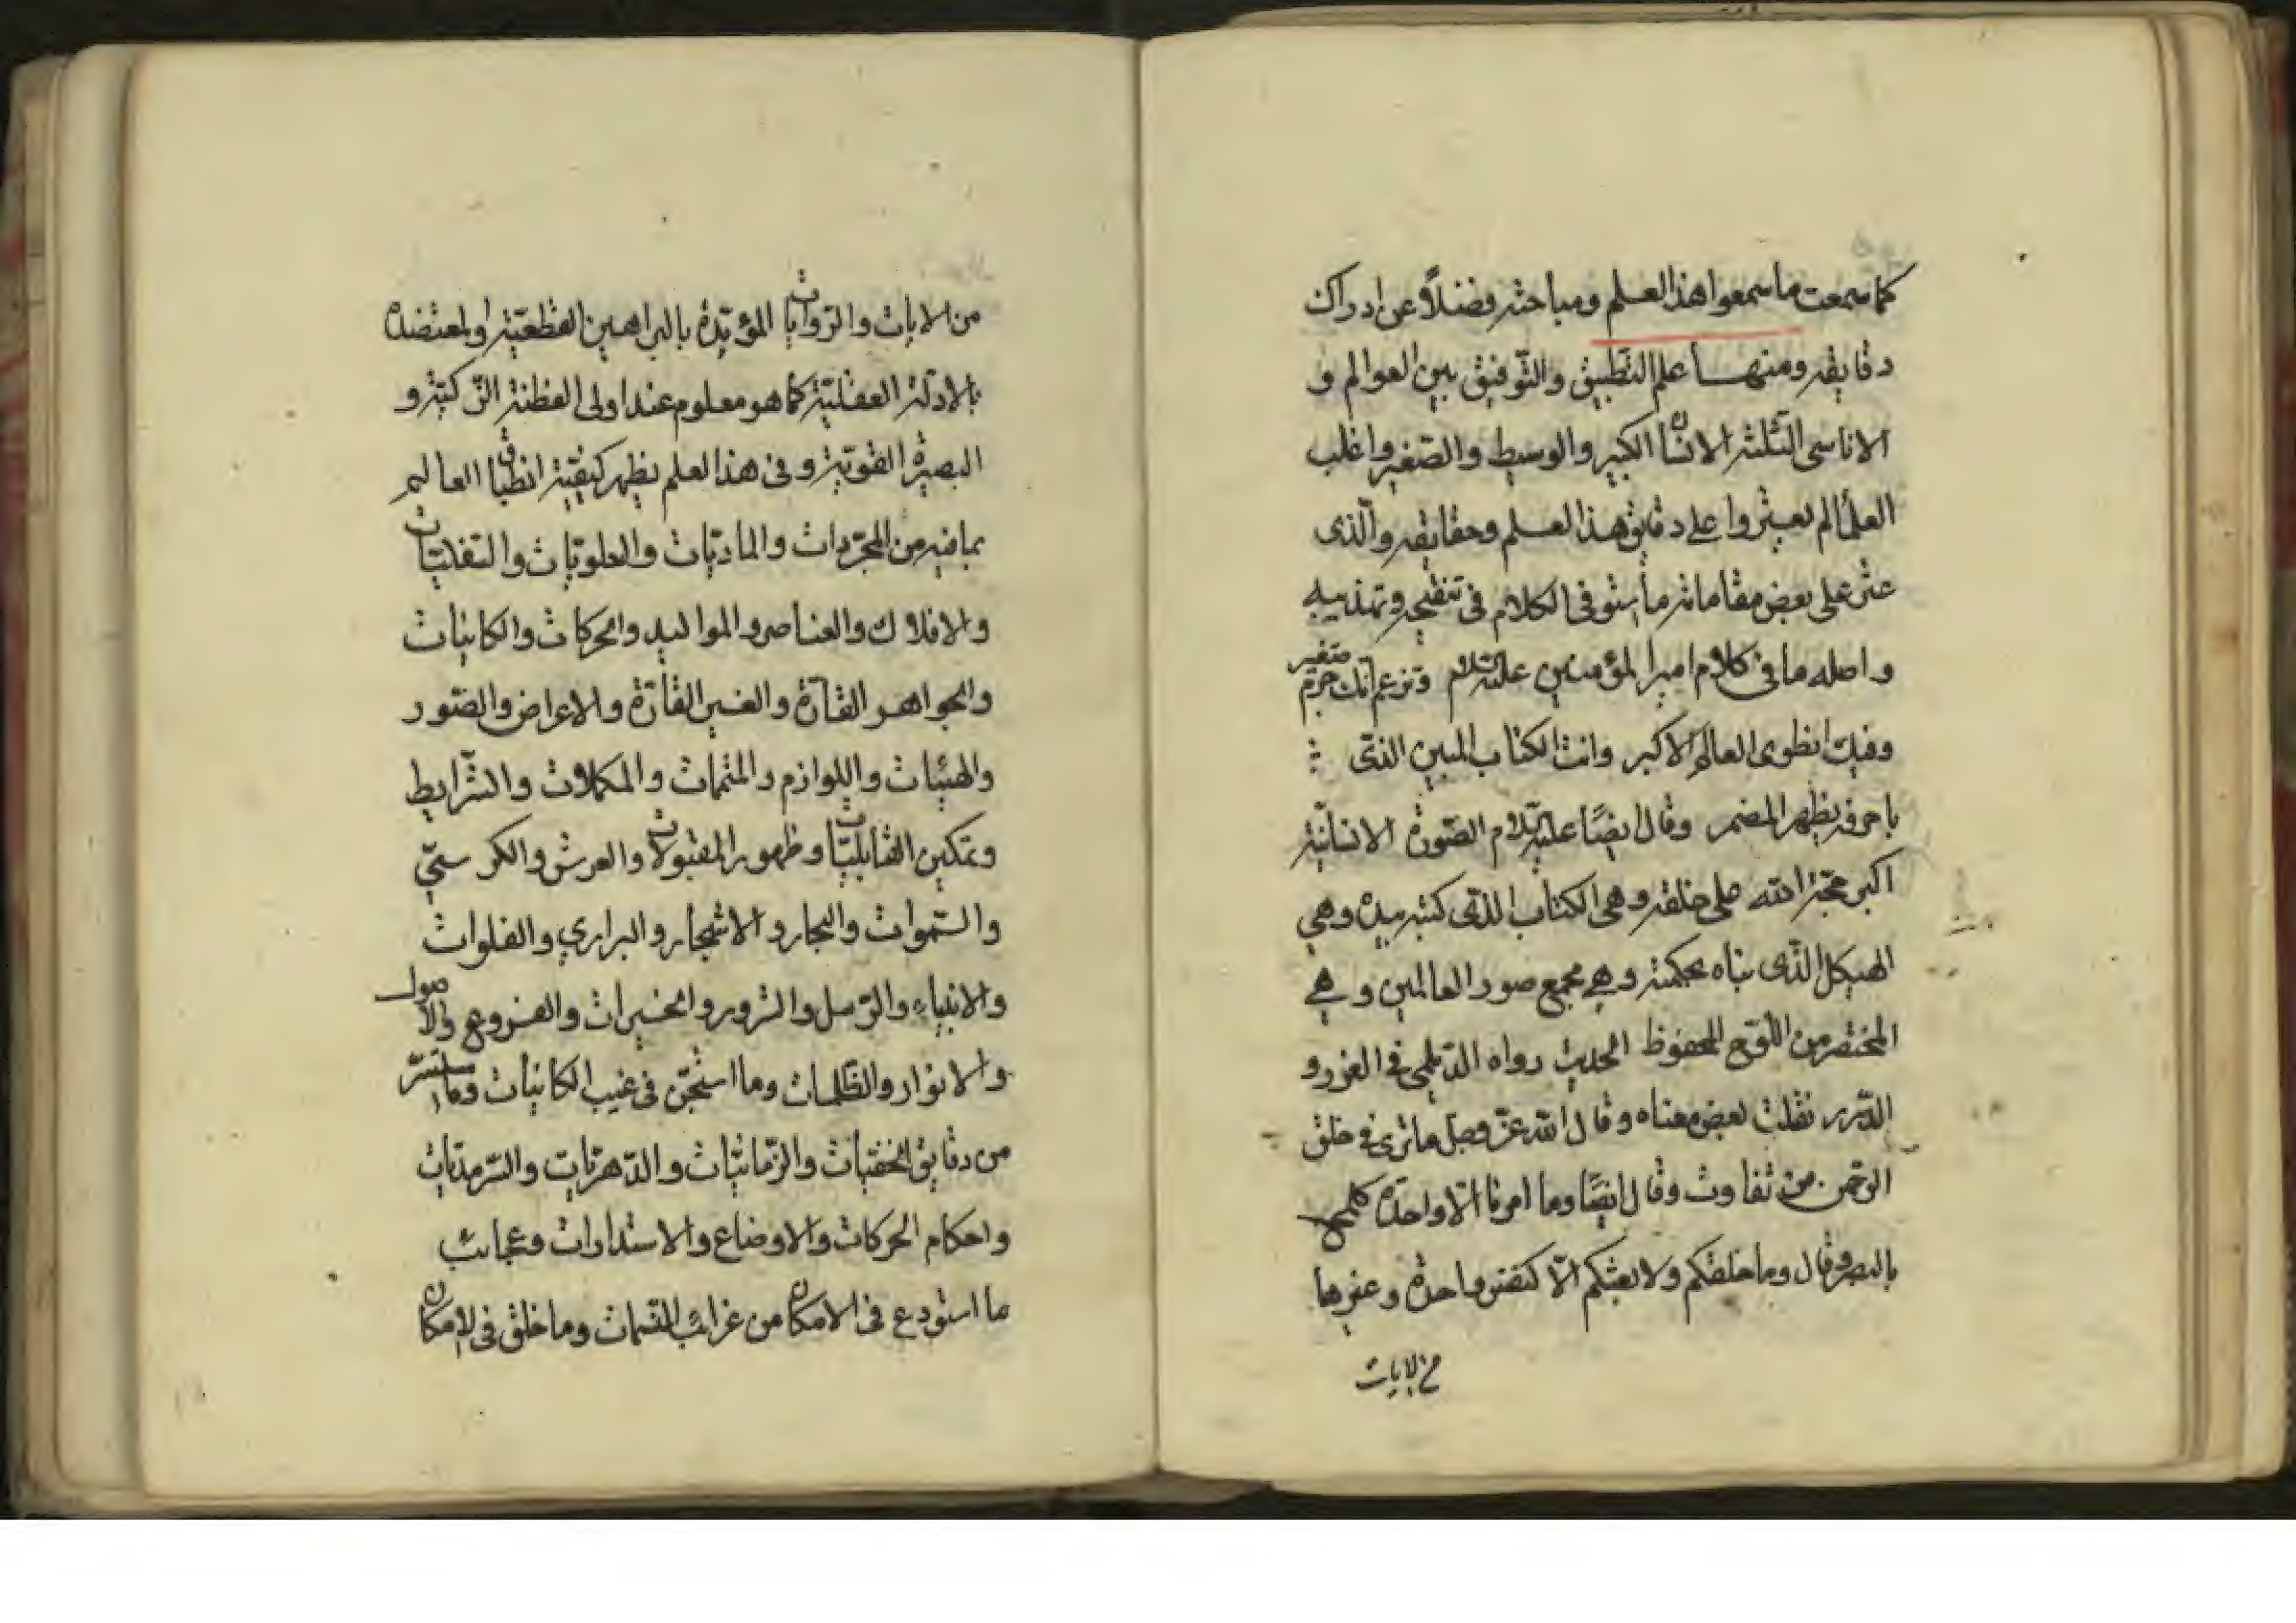 كما سمعت ما سمعوا هذا العلم ومباحثه فضلاً عن ادراك
دقايقه ومنها علم التطبيق والتوفيق بين العوالم و
الاناسى الثلثة الانسان الكبير والوسيط والصغير واغلب
العلمآ لم يعثروا على دقايق هذا العلم وحقايقه والّذى
عثر على بعض مقاماته ما استوفى الكلام فى تنقيحه وتهذيبه
واصله ما فى كلام امير المؤمنين عليه السلام وتزعم انّك جرم صغير
وفيك انطوى العالم الاكبر وانت الكتاب المبين الذى
باحرفه يظهر المضمر وقال ايضًا عليه السلام الصّورة الانسانيّة
اكبر حجّة الله على خلقه وهى الكتاب الذى كتبه بيده وهي
الهيكل الّذى بناه بحكمته وهي مجمع صور العالمين وهي
المختصر من اللّوح المحفوظ الحديث رواه الدّيلمى فى الغرر و
الدّرر نقلت بعض معناه وقال الله عزّ وجل ما ترى فى خلق
الرّحمن من تفاوت وقال ايضًا وما امرنا الّا واحدة كلمح
بالبصر وقال وما خلقكم ولا بعثكم الّا كنفس واحدة وغيرها
من الايات
من الايات والرّوايات المؤيّدة بالبراهين القطعيّة او المعتضدة
بالادلّة العقليّة كما هو معلوم عند اولى الفطنة الزّكيّة و
البصيرة القويّة وفى هذا العلم يظهر كيفيّة انطباق العالم
بما فيه من المجرّدات والماديّات والعلويّات والسّفليّات
والافلاك والعناصر والمواليد والحركات والكاينات
والجواهر القارّة والغير القارّة والاعراض والصّور
والهيئات واللوازم والمتمّمات والمكملات والشّرايط
وتمكين القابليّات وظهور المقبولات والعرش والكرسيّ
والسّموات والبحار والاشجار والبراري والفلوات
والانبياء والرّسل والشرور والخيرات والفروع والاصول
والانوار والظّلمات وما استجنّ فى غيب الكاينات وما استسّر
من دقايق الخفيّات والزّمانيّات والدّهريّات والسّرمديّات
واحكام الحركات والاوضاع والاستدارات وعجائب
ما استودع فى الامكان من غرائب القسمات وما خلق فى الامكان